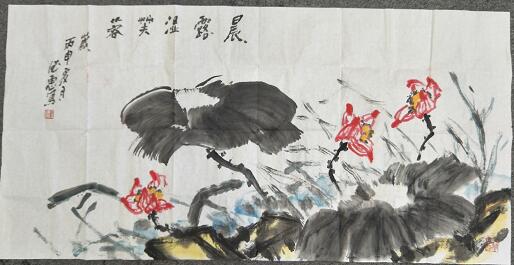 晨露湿芙蓉
歲
丙申夏月